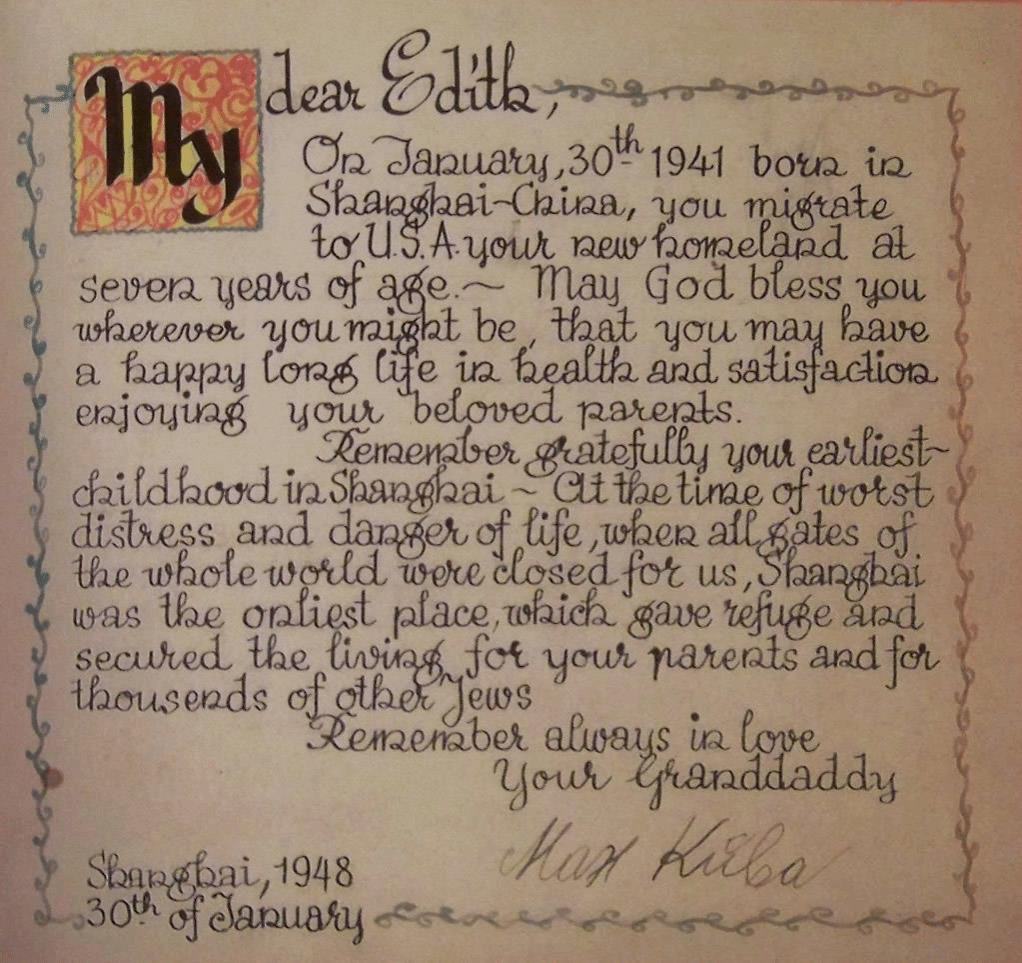 My dear Edith,
On January, 30th 1941 born in
Shanghai-China, you migrate
to U.S.A. your new homeland at
seven years of age.~ May God bless you
wherever you might be, that you may have
a happy long life in health and satisfaction
enjoying your beloved parents.
Remember gratefully your earliest~
childhood in Shanghai ~ At the time of worst
distress and danger of life, when all gates of
the whole world were closed for us, Shanghai
was the onliest place, which gave refuge and
secured the living for your parents and for
thousends of other Jews
Remember always in love
Your Granddaddy
Max
Shanghai, 1948
30th of January